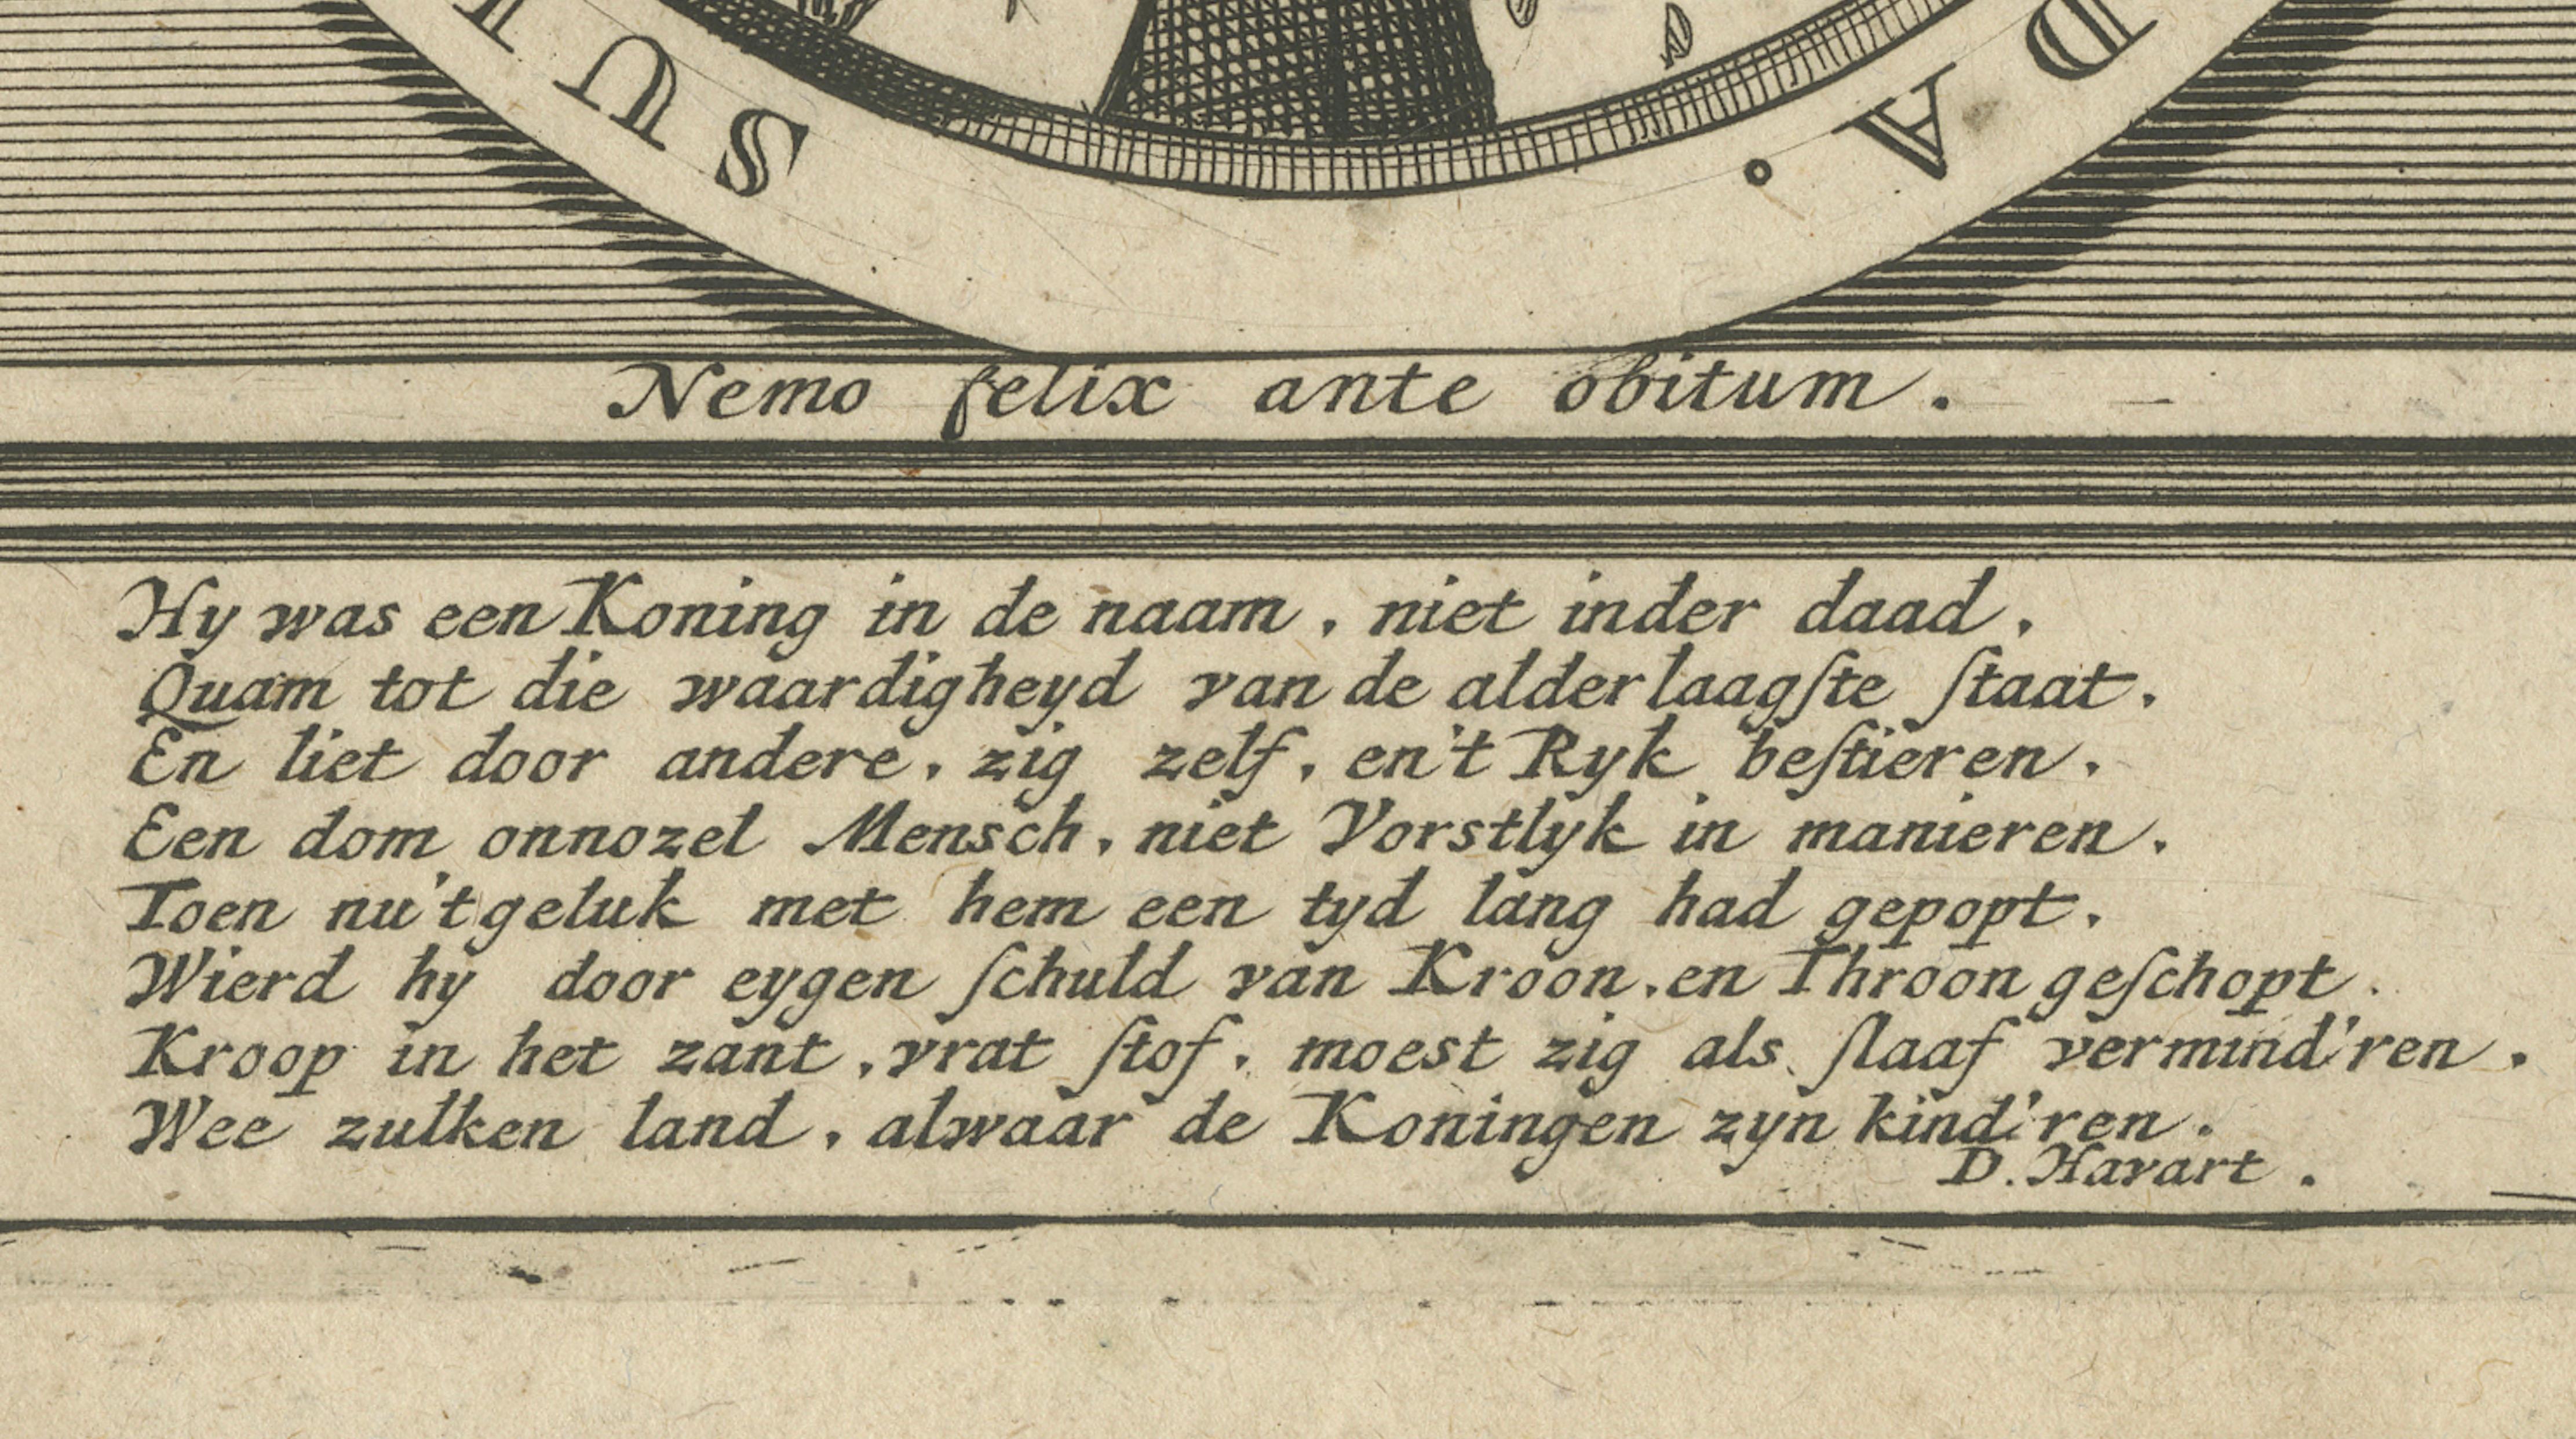 IUS
DA.
Nemo felix ante obitum.
Hy was een Koning in de naam, niet inder daad,
Quam tot die waardigheyd van de alderlaagſte ſtaat,
En liet door andere, zig zelf, en't Ryk beſtieren,
Een dom onnozel Mensch, niet Vorstlyk in manieren,
Toen nu't geluk met hem een tyd lang had gepopt,
Wierd hy door eygen ſchuld van Kroon, en Throon geſchopt.
Kroop in het zant, vrat ſtof, moest zig als ſlaaf vermind'ren,
Wee zulken land, alwaar de Koningen zyn kind'ren.
D. Havart.